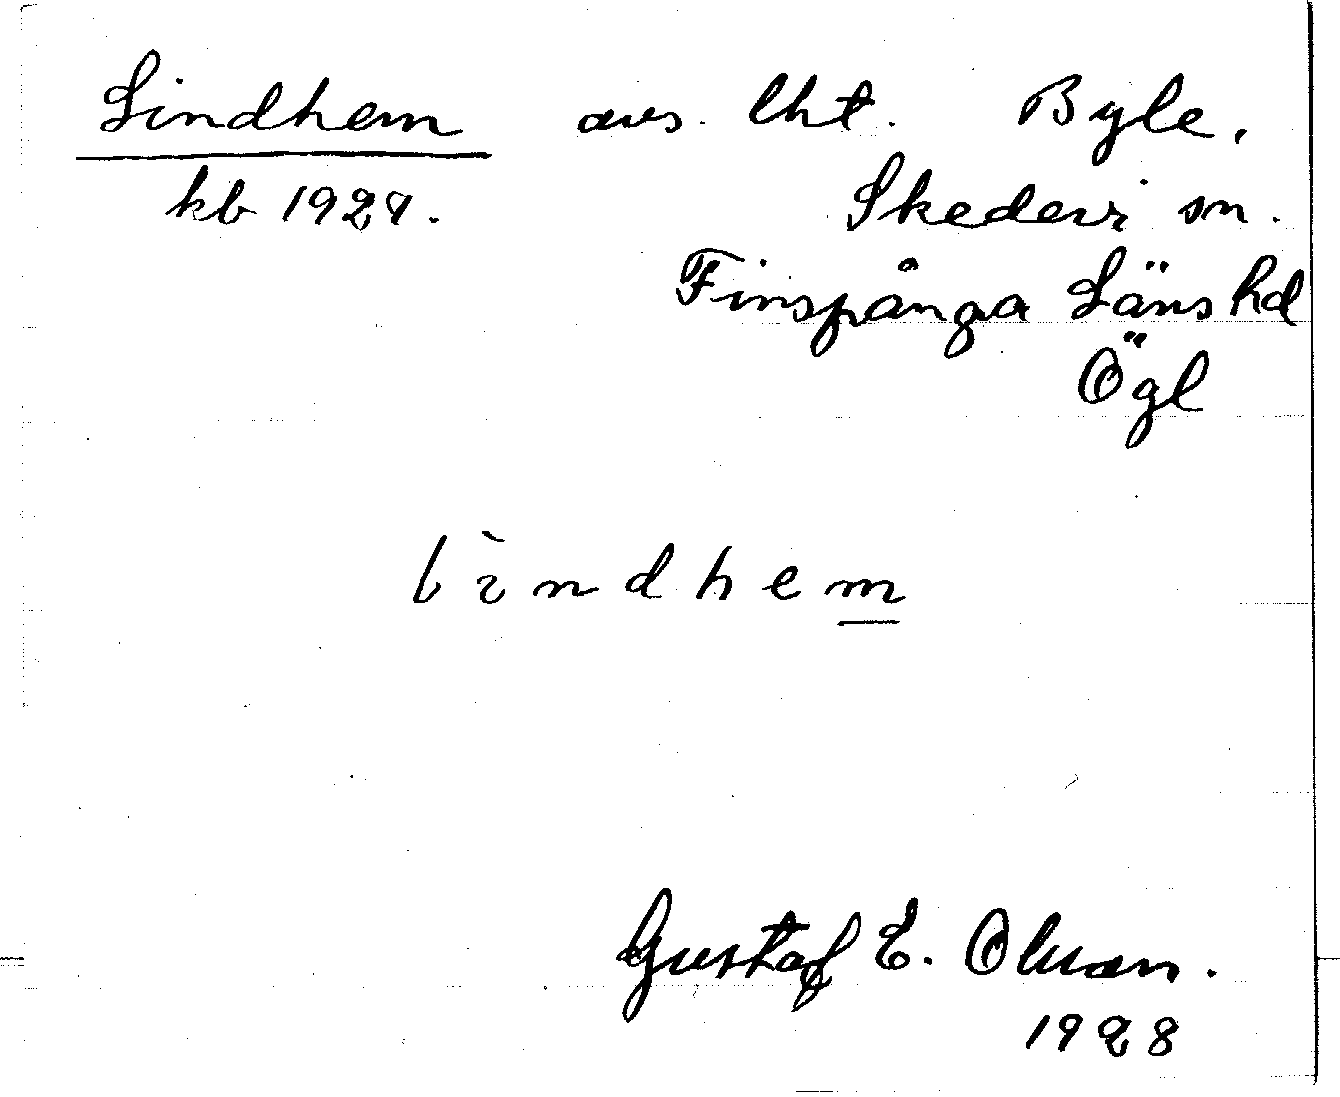 Lindhem avs. lht. Byle,
kb 1928. Skedevi sn.
Finspånga Läns hd
Ögl
lìndhem
Gustaf E. Olsson.
1928